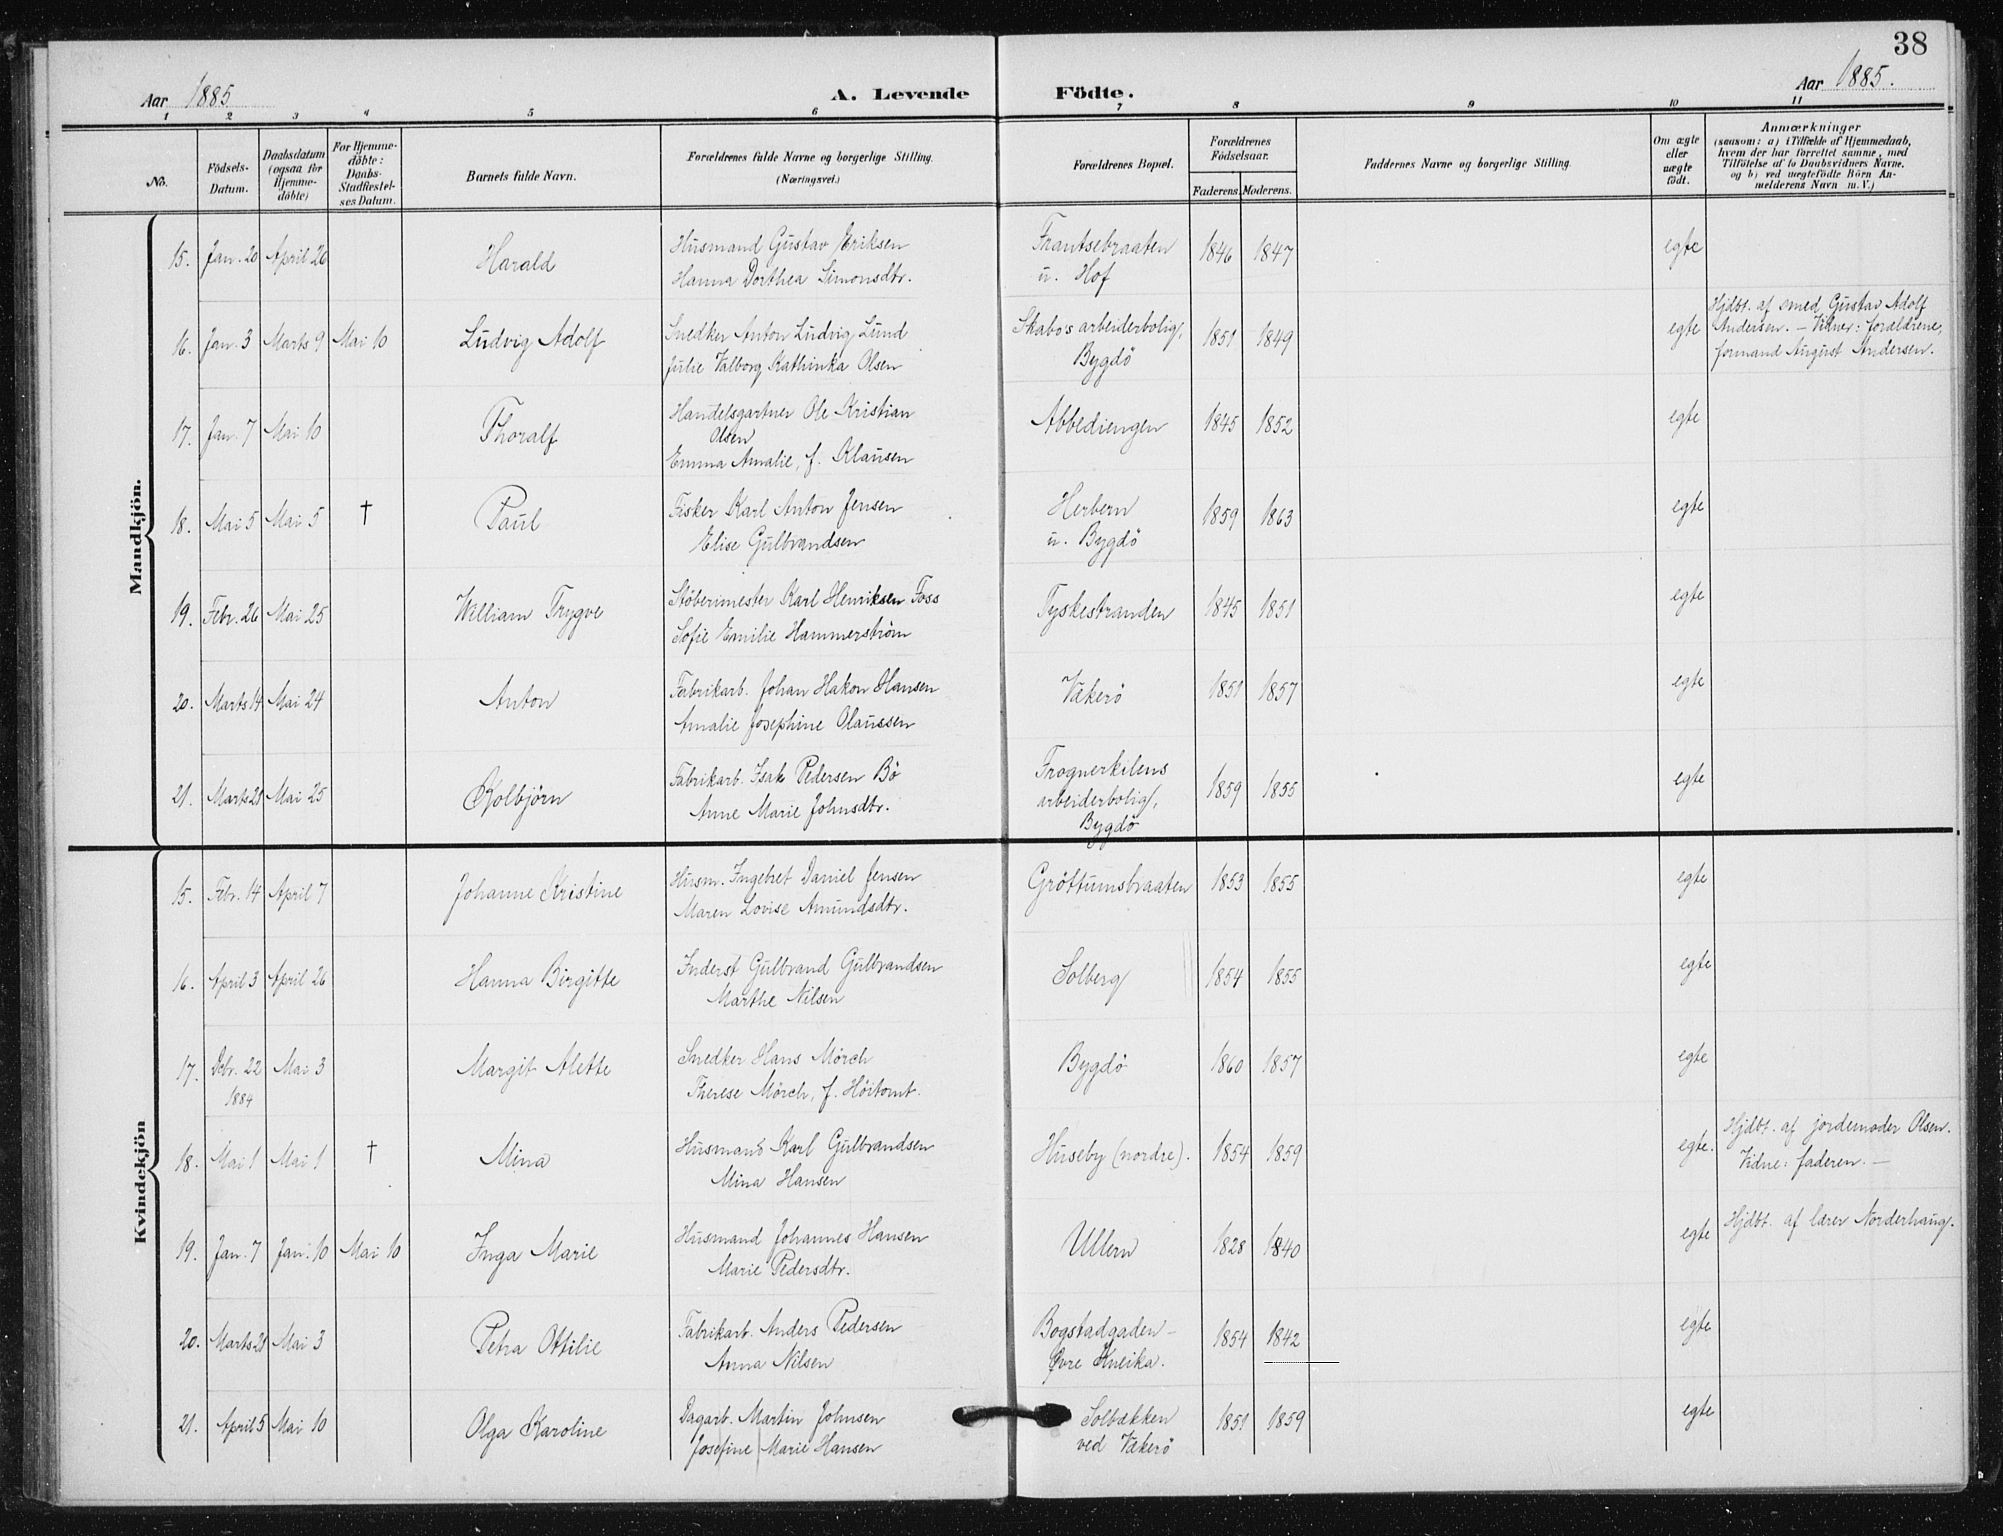 38
Aar 1885
A. Levende Födte.
Aar 1885.
1 2 3 4 5 6 7 8 9 10 11
No.
Födsels-Datum.
Daabsdatum (ogsaa for Hjemme-döbte)
For Hjemme-döbte: Daabs-Stadfæstel-ses Datum.
Barnets fulde Navn.
Forældrenes fulde Navne og borgerlige Stilling.
(Næringsvei.)
Forældrenes Bopæl.
Forældrenes Födselsaar.
Faderens. Moderens.
Faddernes Navne og borgerlig Stilling.
Om ægte eller uægte födt.
Anmærkninger
(saasom: a) i Tilfælde af Hjemmedaab,
hvem der har forrettet samme, med
Tilföielse af to Daabsvidners Navne.
og b) ved uægtefödte Börn An-
melderens Navn m. V.)
Mandkjön.
15. Jan. 20 April 26 Harald Husmand Gustav Eriksen Frantsebraaten 1846 1847 egte
Hanna Dorthea Simonsdtr. u. Hof
16. Jan. 3 Marts 9 Mai 10 Ludvig Adolf Snedker Anton Ludvig Lund Skabo's arbeiderbolig, 1851 1849 egte Hjdbt. af smed Gustav Adolf
Julie Valborg Kathinka Olsen Bygdö Andersen. – Vidner: forældrene,
formand August Andersen.
17. Jan. 7 Mai 10 Thoralf Handelsgartner Ole Kristian Abbediengen 1845 1852 egte
Olsen
Emma Amalie, f. Klausen
18. Mai 5 Mai 5 † Paul Fisker Karl Anton Jensen Herbern 1859 1863 egte
Elise Gulbrandsen u. Bygdö
19. Febr. 26 Mai 25 William Trygve Stöberimester Karl Henriksen Foss Tyskestranden 1845 1851 egte
Sofie Emilie Hammerström
20. Marts 14 Mai 24 Anton Fabrikarb. Johan Hakon Hansen Vækerö 1851 1857 egte
Amalie Josephine Olaussen
21. Marts 21 Mai 25 Kolbjörn Fabrikarb. Isak Pedersen Bö Frognerkilens 1859 1855 egte
Anne Marie Johnsdtr. arbeiderbolig,
Bygdö
Kvindekjön
15. Febr. 14 April 7 Johanne Kristine Husm. Ingebret Daniel Jensen Gröttumsbraaten 1853 1855 egte
Maren Lovise Amundsdtr.
16. April 3 April 26 Hanna Birgitte Inderst Gulbrand Gulbrandsen Solberg 1854 1855 egte
Marthe Nilsen
17. Dcbr. 22 Mai 3 Margit Alette Snedker Hans Mörch Bygdö 1860 1857 egte
1884 Therese Mörch, f. Höitomt.
18. Mai 1 Mai 1 † Mina Husmand Karl Gulbrandsen Huseby (nordre). 1854 1859 egte. Hjdbt. af jordemoder Olsen.
Mina Hansen Vidne: faderen. –
19. Jan. 7 Jan. 10 Mai 10 Inga Marie Husmand Johannes Hansen Ullern 1828 1840 egte Hjdbt. af lærer Norderhaug.
Marie Pedersdtr.
20. Marts 21 Mai 3 Petra Ottilie Fabrikarb. Anders Pedersen Bogstadgaden – 1854 1842 egte
Anna Nilsen Øvre Kneika.
21. April 5 Mai 10 Olga Karoline Dagarb. Martin Johnsen Solbækken 1851 1859 egte
Josefine Marie Hansen ved Vækerö